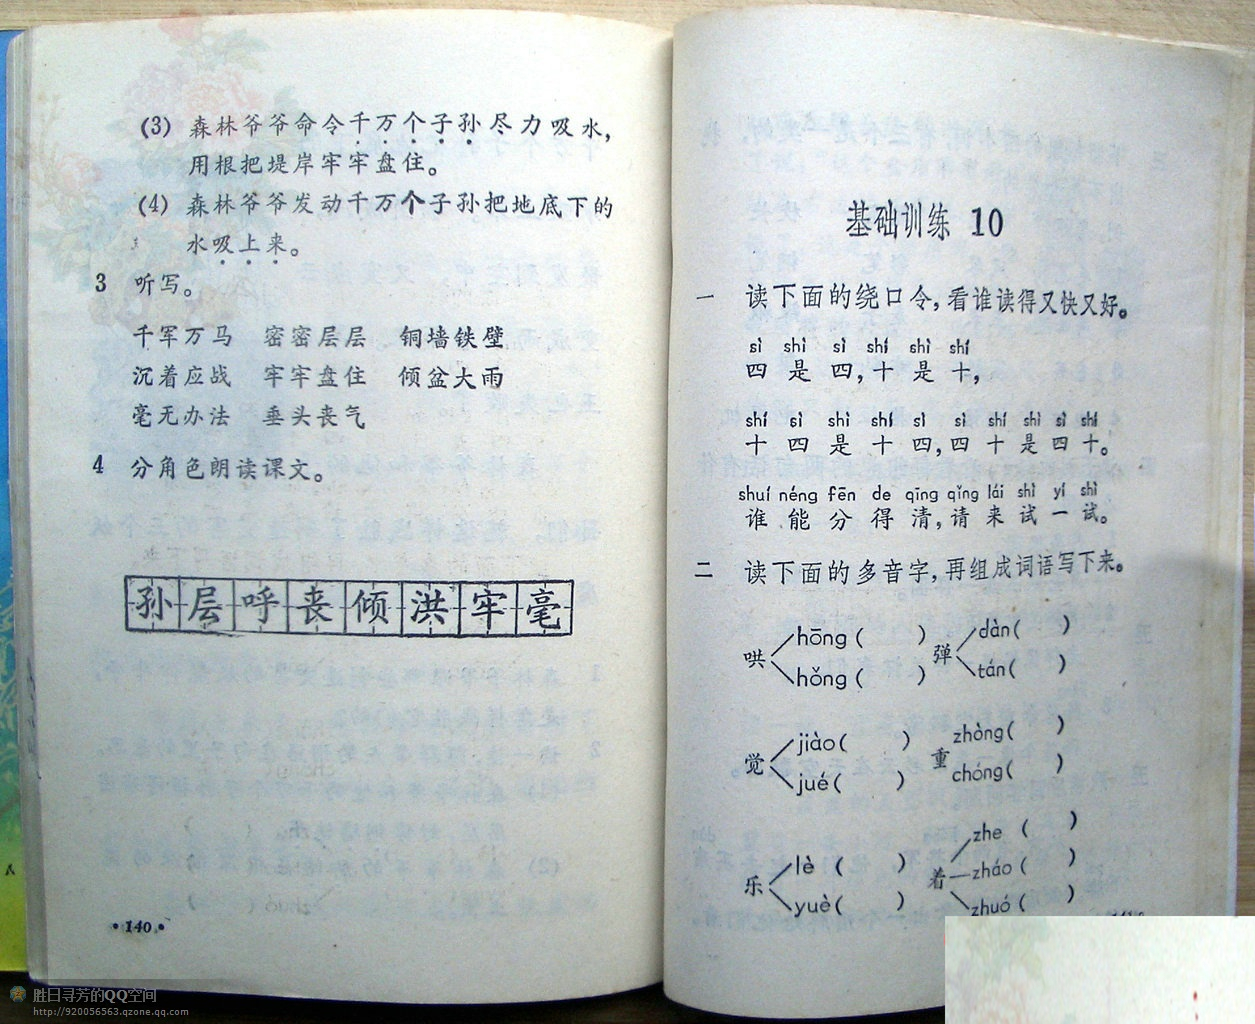 (3) 森林爷爷命令千万个子孙尽力吸水，
用根把堤岸牢牢盘住。
(4) 森林爷爷发动千万个子孙把地底下的
水吸上来。
3 听写。
千军万马 密密层层 铜墙铁壁
沉着应战 牢牢盘住 倾盆大雨
毫无办法 垂头丧气
4 分角色朗读课文。
孙层呼丧倾洪牢毫
·140·
基础训练 10
一 读下面的绕口令，看谁读得又快又好。
sì shì sì shí shì shí
四 是 四，十 是 十，
shí sì shì shí sì sì shí shì sì shí
十 四 是 十 四，四 十 是 四 十。
shuí néng fēn de qīng qǐng lái shì yí shì
谁 能 分 得 清，请 来 试 一 试。
二 读下面的多音字，再组成词语写下来。
哄 hōng ( ) hǒng ( ) 弹 dàn ( ) tán ( )
觉 jiào ( ) jué ( ) 重 zhòng ( ) chóng ( )
乐 lè ( ) yuè ( ) 着 zhe ( ) zháo ( ) zhuó ( )
胜日寻芳的QQ空间
http://920056563.qzone.qq.com